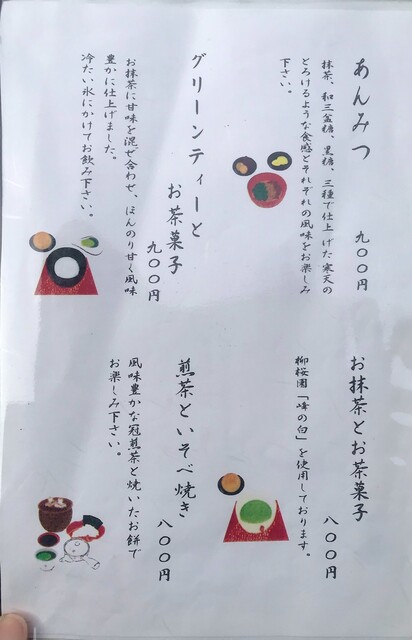 あんみつ
九〇〇円
抹茶、和三盆糖、黒糖、三種で仕上げた寒天の
とろけるような食感とそれぞれの風味をお楽しみ
下さい。
グリーンティーと
お茶菓子
九〇〇円
お抹茶に甘味を混ぜ合わせ、ほんのり甘く風味
豊かに仕上げました。
冷たい氷にかけてお飲み下さい。
お抹茶とお茶菓子
八〇〇円
柳桜園「峰の白」を使用しております。
煎茶といそべ焼き
八〇〇円
風味豊かな冠煎茶と焼いたお餅で
お楽しみ下さい。